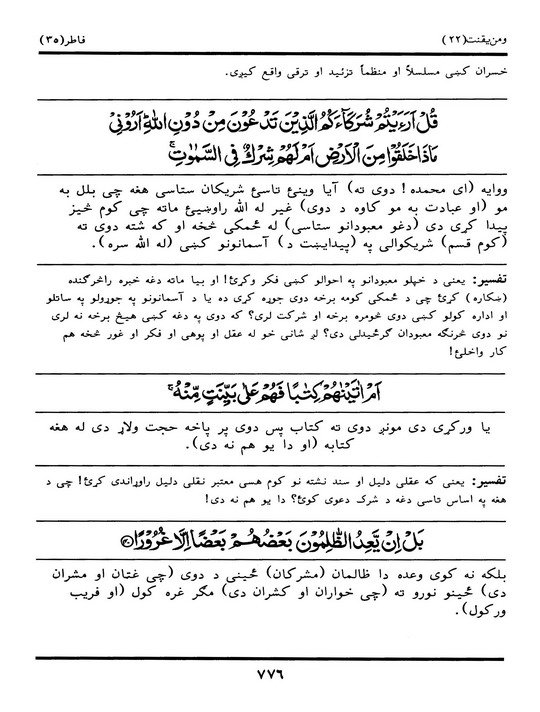 ومن یقنت(۲۲) فاطر(۳۵)
خسران کښی مسلسلاً او منظماً تزئید او ترقی واقع کیږی.
قُلْ اَرَءَيْتُمْ شُرَكَآءَكُمُ الَّذِيْنَ تَدْعُوْنَ مِنْ دُوْنِ اللّٰهِ اَرُوْنِيْ
مَاذَا خَلَقُوْا مِنَ الْاَرْضِ اَمْ لَهُمْ شِرْكٌ فِي السَّمٰوٰتِ ۚ
ووایه (ای محمده ! دوی ته) آیا وینئ تاسئ شریکان ستاسی هغه چی بلل به
مو (او عبادت به مو کاوه د دوی) غیر له الله راوښیئ ماته چی کوم څیز
پیدا کړی دی (دغو معبودانو ستاسی) له ځمکی څخه او که شته دوی ته
(کوم قسم) شریکوالی په (پیدایښت د) آسمانونو کښی (له الله سره).
تفسیر: یعنی د خپلو معبودانو په احوالو کښی فکر وکړئ! او بیا ماته دغه خبره راڅرګنده
(ښکاره) کړئ چی د ځمکی کومه برخه دوی جوړه کړی ده یا د آسمانونو په جوړولو په ساتلو
او اداره کولو کښی دوی څومره برخه او شرکت لری؟ که دوی په دغه کښی هیڅ برخه نه لری
نو دوی څرنګه معبودان ګرځیدلی دی؟ لږ شانی خو له عقل او پوهی او فکر او غور څخه هم
کار واخلئ!
اَمْ اٰتَيْنٰهُمْ كِتٰبًا فَهُمْ عَلٰى بَيِّنَتٍ مِّنْهُ ۚ
یا ورکړی دی مونږ دوی ته کتاب پس دوی پر پاخه حجت ولاړ دی له هغه
کتابه (او دا یو هم نه دی).
تفسیر: یعنی که عقلی دلیل او سند نشته نو کوم هسی معتبر نقلی دلیل راوړاندی کړئ! چی د
هغه په اساس تاسی دغه د شرک دعوی کوئ؟ دا یو هم نه دی!
بَلْ اِنْ يَّعِدُ الظّٰلِمُوْنَ بَعْضُهُمْ بَعْضًا اِلَّا غُرُوْرًا ۴۰
بلکه نه کوی وعده دا ظالمان (مشرکان) ځینی د دوی (چی غټان او مشران
دی) ځینو نورو ته (چی خواران او کشران دی) مگر غره کول (او فریب
ورکول).
۷۷۶